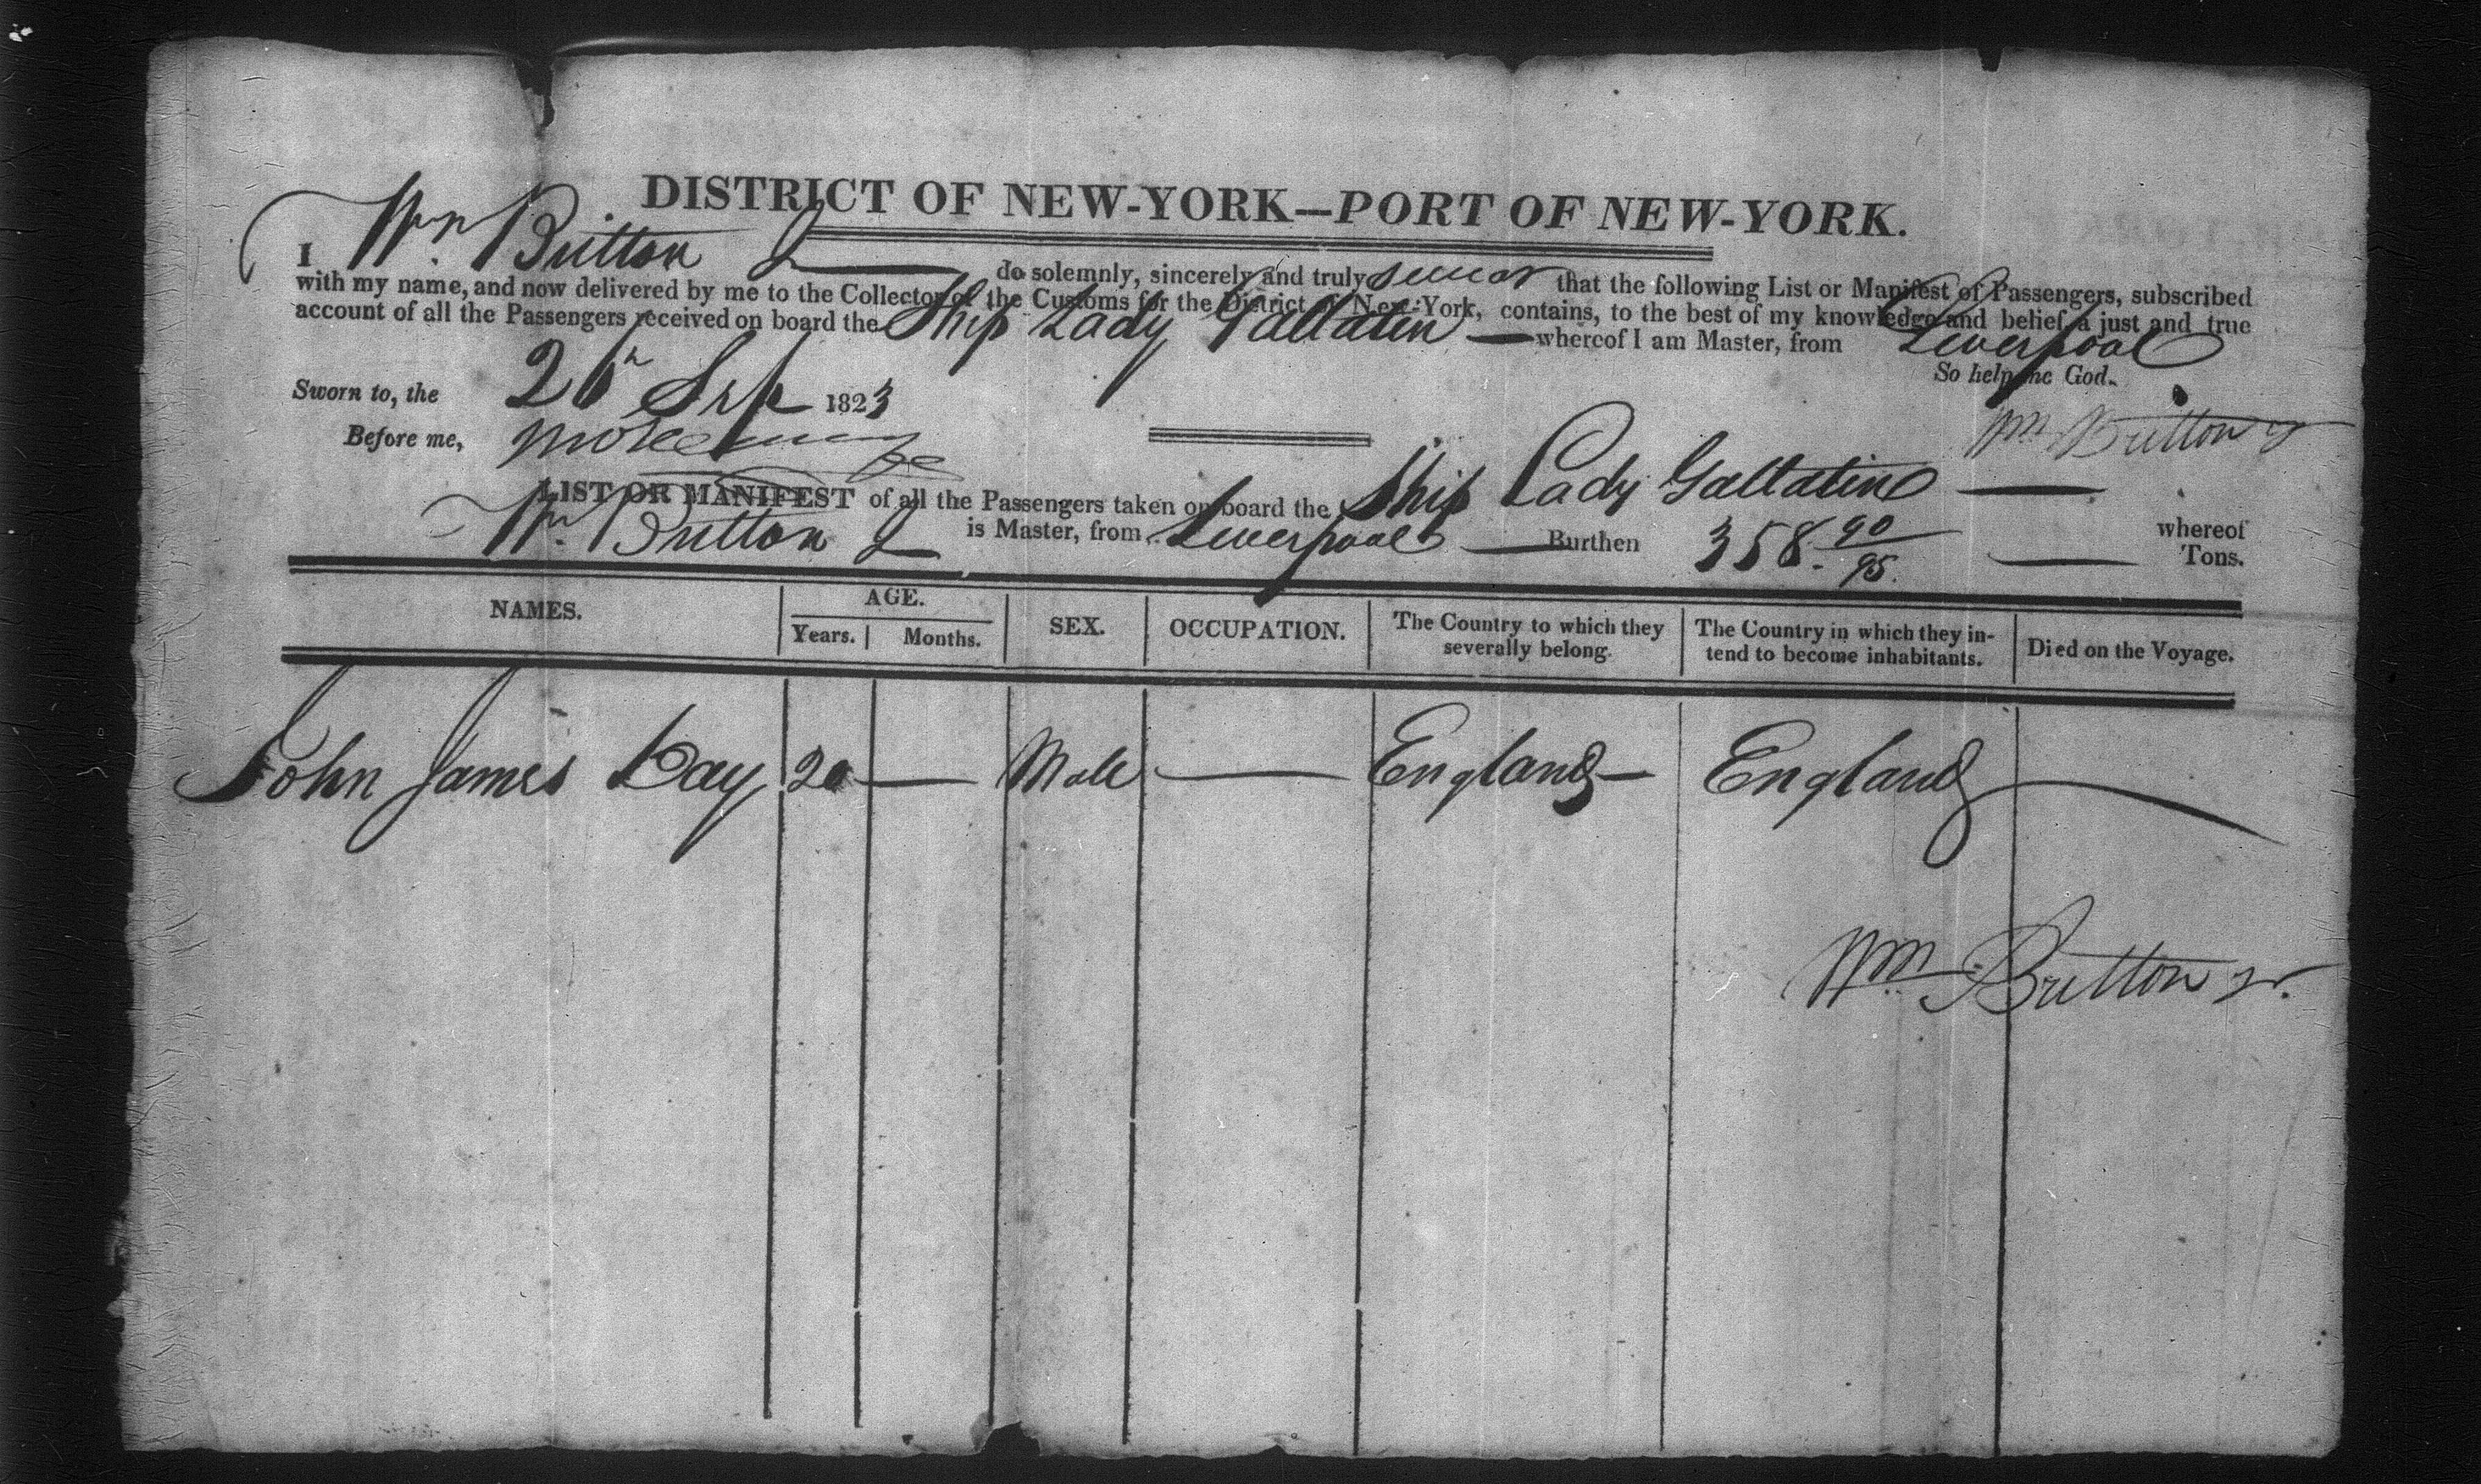 DISTRICT OF NEW-YORK—PORT OF NEW-YORK.
I Wm. Britton Jr do solemnly, sincerely and truly swear that the following List or Manifest of Passengers, subscribed
with my name, and now delivered by me to the Collector of the Customs for the District of New-York, contains, to the best of my knowledge and belief, a just and true
account of all the Passengers received on board the Ship Lady Gallatin — whereof I am Master, from Liverpool
So help me God.
Sworn to, the 26th Sep 1823
Wm Britton Jr
Before me,
LIST OR MANIFEST of all the Passengers taken on board the Ship Lady Gallatin — whereof
Wm. Britton Jr is Master, from Liverpool — Burthen 358 90/95 — Tons.
NAMES. AGE. SEX. OCCUPATION. The Country to which they severally belong. The Country in which they intend to become inhabitants. Died on the Voyage.
Years. Months.
John James Day 20 — Male — England — England —
Wm Britton Jr.